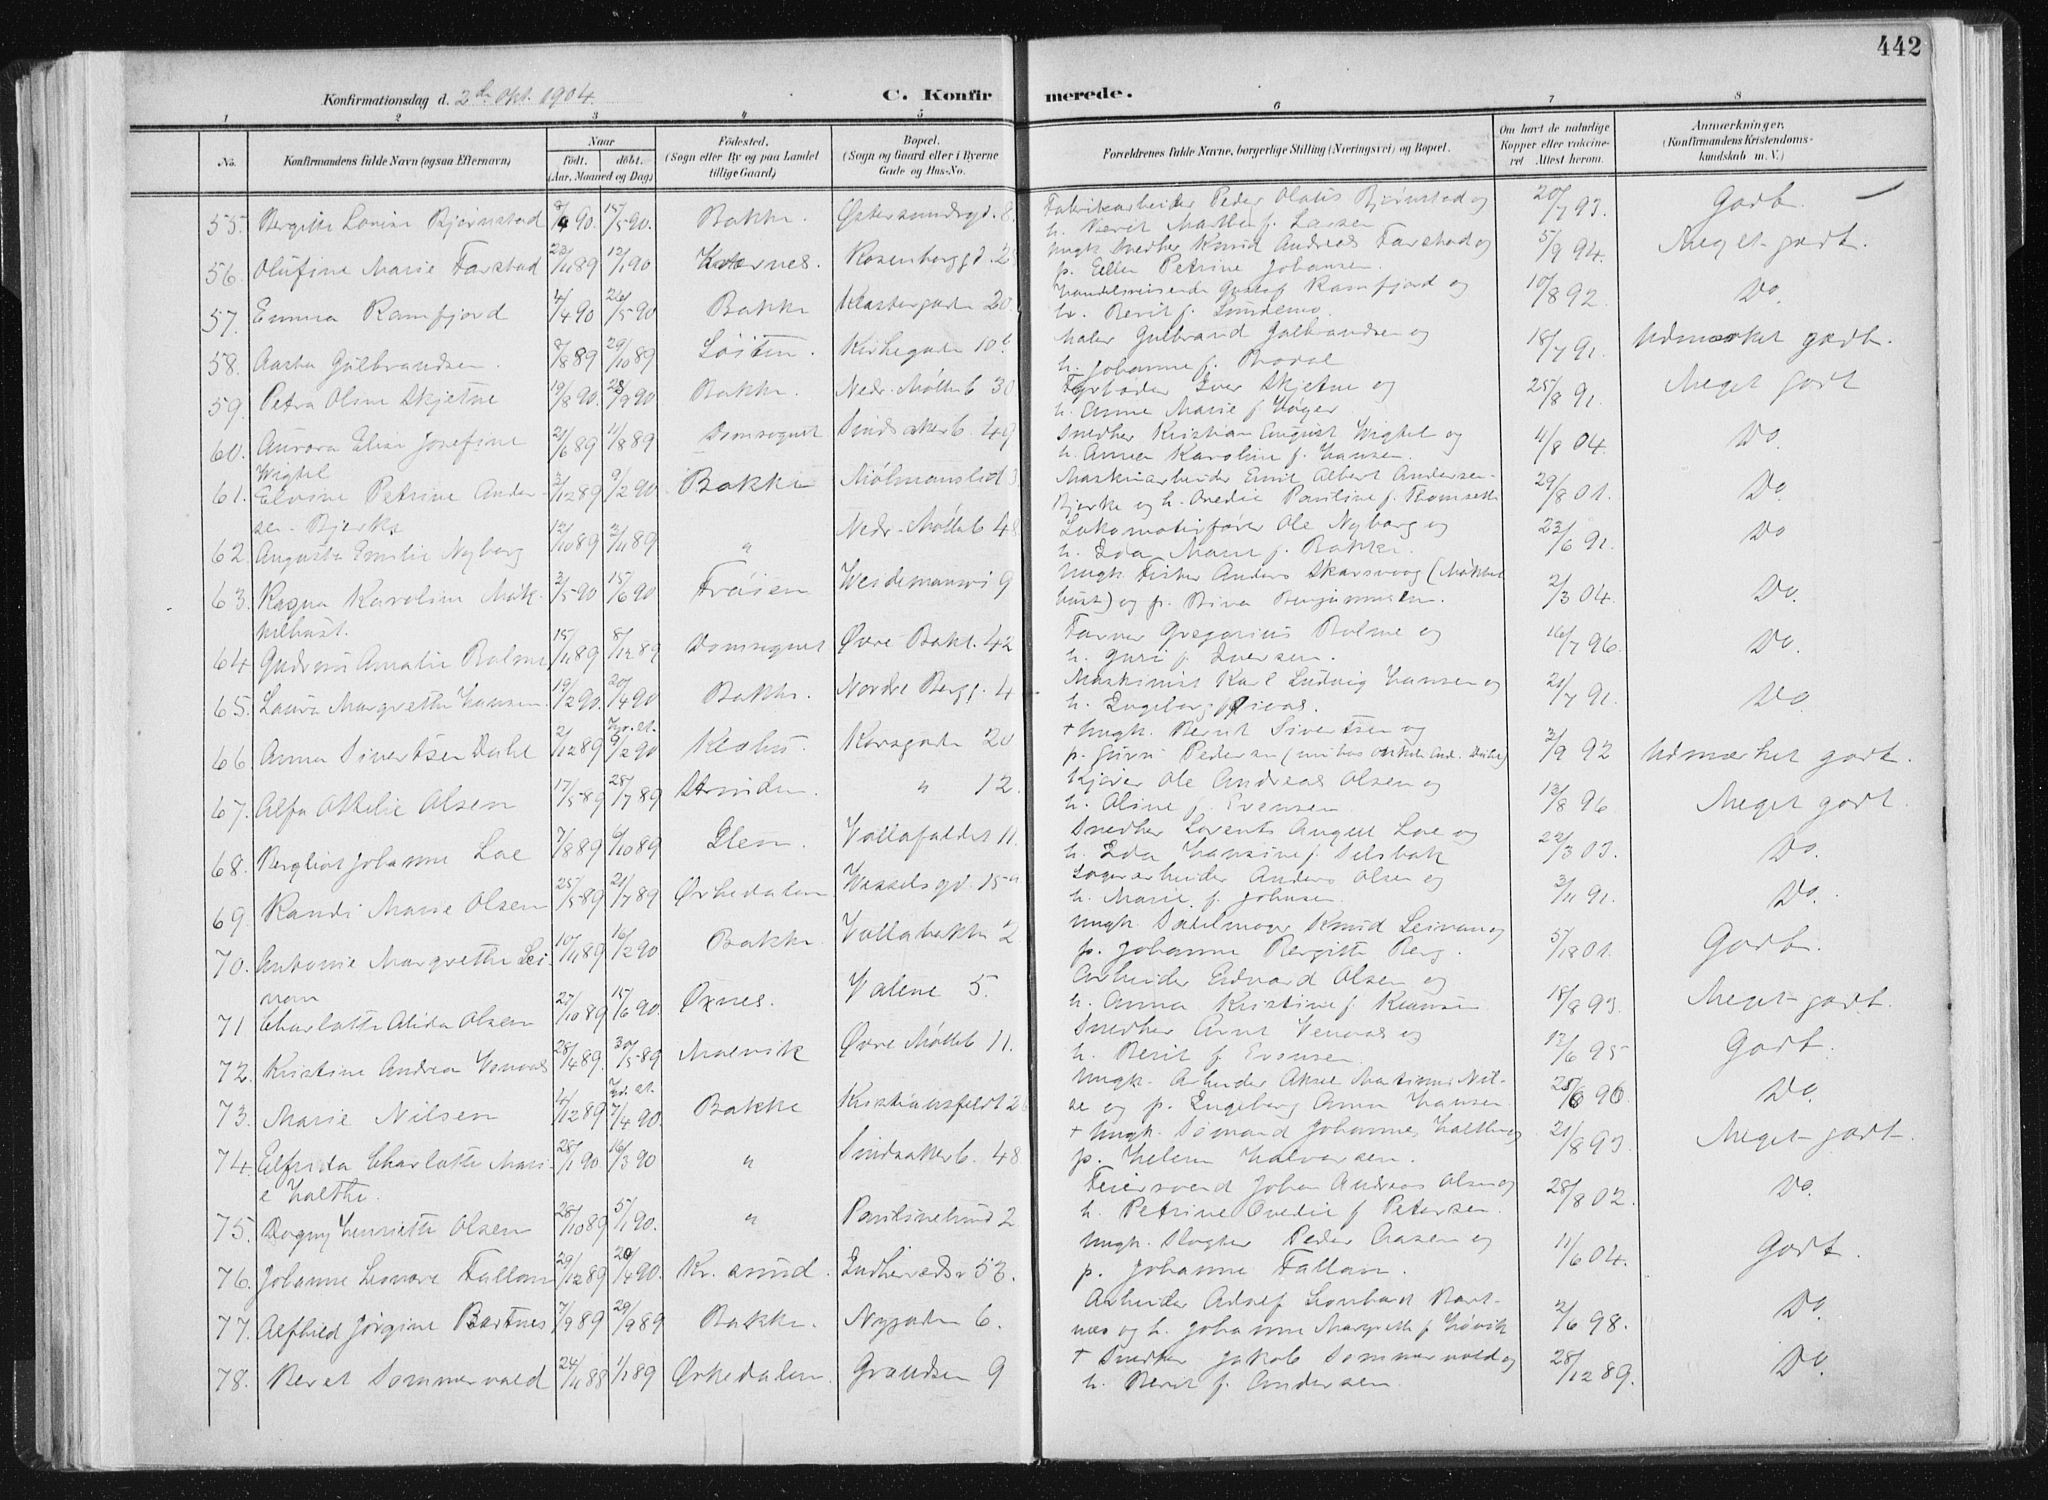 442
Konfirmationsdag d. 2de Okt. 1904.
C. Konfirmerede.
1 2 3 4 5 6 7 8
No.
Konfirmandens fulde Navn (ogsaa Efternavn)
Naar
födt. döbt.
(Aar, Maaned og Dag)
Födested.
(Sogn eller By og paa Landet
tillige Gaard)
Bopæl.
(Sogn og Gaard eller i Byerne
Gade og Hus-No.
Forældrenes fulde Navne, borgerlige Stilling (Næringsvei) og Bopæl.
Om havt de naturlige
Kopper eller vaccineret
Attest herom.
Anmærkninger.
(Konfirmandens Kristendomskundskab
m. V.)
Fabrikarbeider Peder Olaus Bjørnstad og
55. Bergitte Lovise Bjørnstad 15/5 90. Bakke. Østersundsgd. 20/7 93. Godt.
h. Berit Marthe f. Larsen
Ungk. Snedker Knud Andreas Farstad og
56. Olufine Marie Farstad 23/11 89 12/1 90 Rosenborggd. 2 5/9 94. Meget godt.
p. Ellen Petrine Johansen.
Handelsreisende Gustaf Ramfjord og
57. Emma Ramfjord 4/4 90 26/5 90 Bakke 20 10/8 92 Do.
h. Berit f.
Maler Gulbrand Gulbrandsen og
58. Aasta Gulbrandsen. 8/8 89 29/10 89 Løiten. Kirkegaden 10 b 18/7 91. Udmærket godt.
h. Johanne f.
Iver Skjetne og
59 Petra Olsen Skjetne 19/8 90. 28/9 90 Bakke. Nedr. Mølleb 30 25/8 91. Meget godt
h. Anne Marie f. Høyer
Snedker Kristian August Wigtel og
60. Aurora Elise Josefine 21/6 89 11/8 89 Domsognet Sindsakerb. 49 4/8 04. Do.
Wigtel
h. Anna Karoline f. Hansen.
Maskinarbeider Emil Albert Andersen
61. Petrine Ander- 3/12 89 9/2 90 Bakke 29/8 01. Do.
sen Bjerke
Bjerke og h. Ovedie Pauline f.
Lokomotivfører Ole Nyborg og
62 Augusta Emilie Nyborg 12/10 89 3/11 89 " Nedr. Mølleb 23/6 91. Do
h. Ida Marie f. Bakken.
Ungk. Fisker Anders Skarsvaag
63. Ragna Karoline 3/5 90 15/6 90 Frøien Weidemansvei 9 2/3 04. Do.
Farver Gregorius Bolme og
64 Gudrun Amalie Bolme 15/11 89 8/12 89 Domsognet Øvre Bakl. 42 16/7 96. Do.
h. Guri f. Iversen.
Maskinist Karl Ludvig Hansen og
65. Laura Margrethe Hansen 19/2 90. 20/4 90 Bakke. Nordre Bergg. 4 21/7 91. Do.
h. Ingeborg f.
+ Ungk. Bernt Sivertsen og
66 Anna Sivertsen Dahl 2/12 89 9/2 90 Korsgaden 20 3/9 92 Udmærket godt.
p. Guru Pedersen
Kjører Ole Andreas Olsen og
67. Alfa Othelie Olsen 17/5 89 28/7 89 Strinden. " 12. 13/8 96 Meget godt
h. Oline f. Svensen
Snedker Lorents August Loe og
68. Bergliot Johanne Loe 7/8 89 6/10 89 Vollafaldet 11. 22/3 03. Do.
h. Ida Hansine f. Selsbak
Sagarbeider Anders Olsen og
69. Randi Marie Olsen 25/5 89 21/7 89 Ørkedalen Wesselsgd. 15 a 3/11 91. Do.
h. Marie f. Johnsen
Ungk. Sadelmager Knud Leivan og
70. Antonie Margrethe Lei- 10/11 89 16/2 90 Bakke. Vollabakken 2 5/8 01. Godt.
p. Johanne Bergitte Berg.
Arbeider Edvard Olsen og
71 Charlotte Alida Olsen 27/10 89 15/6 90. Øxnes. 5. 18/8 93. Meget godt.
h. Anna Kristine f.
Snedker Arnt Venaas og
72. Kristine Andrea Venaas 28/4 89. 30/5 89 Malvik Øvre Mølleb 11. 12/6 95 Godt.
h. Berit f. Evensen.
Ungk. Arbeider Aksel Martinus Nil-
73. Marie Nilsen 7/4 90. Bakke Kristiansfeldt 25/6 96. Do.
se og p. Ingeborg Anna Hansen
+ Ungk. Sømand Johannes Halthe og
74. Elfrida Charlotte Mari- 28/1 90 16/3 90 " Sindsakerb. 48 21/8 93 Meget godt.
e Halthe.
p. Helene Halvorsen.
Feiersvend Johan Andreas Olsen og
75. Dagny Henriette Olsen 28/10 89 5/1 90. " Paulinelund 2 28/8 02. Do.
h. Petrine Ovedie f Petersen.
Ungk. Slagter Peder Aasen og
76. Johanne Leonore Fallan 29/12 89 20/4 90. Kr. sund. Indherredsv 53. 11/6 04. Godt.
p. Johanne Fallan.
Arbeider Adolf Leonhard Bart-
77. Alfhild Jørgine Bartnes 7/9 89 29/9 89 Bakke. Nygaden 6. 2/6 98. Do.
nes og h. Johanne Margrethe f. Høvik
+ Snedker Jakob Sommervold og
78. Beret Sommervold 24/11 88 1/1 89 Ørkedalen. Grændsen 9 28/12 89. Do.
h. Berit f. Andersen.